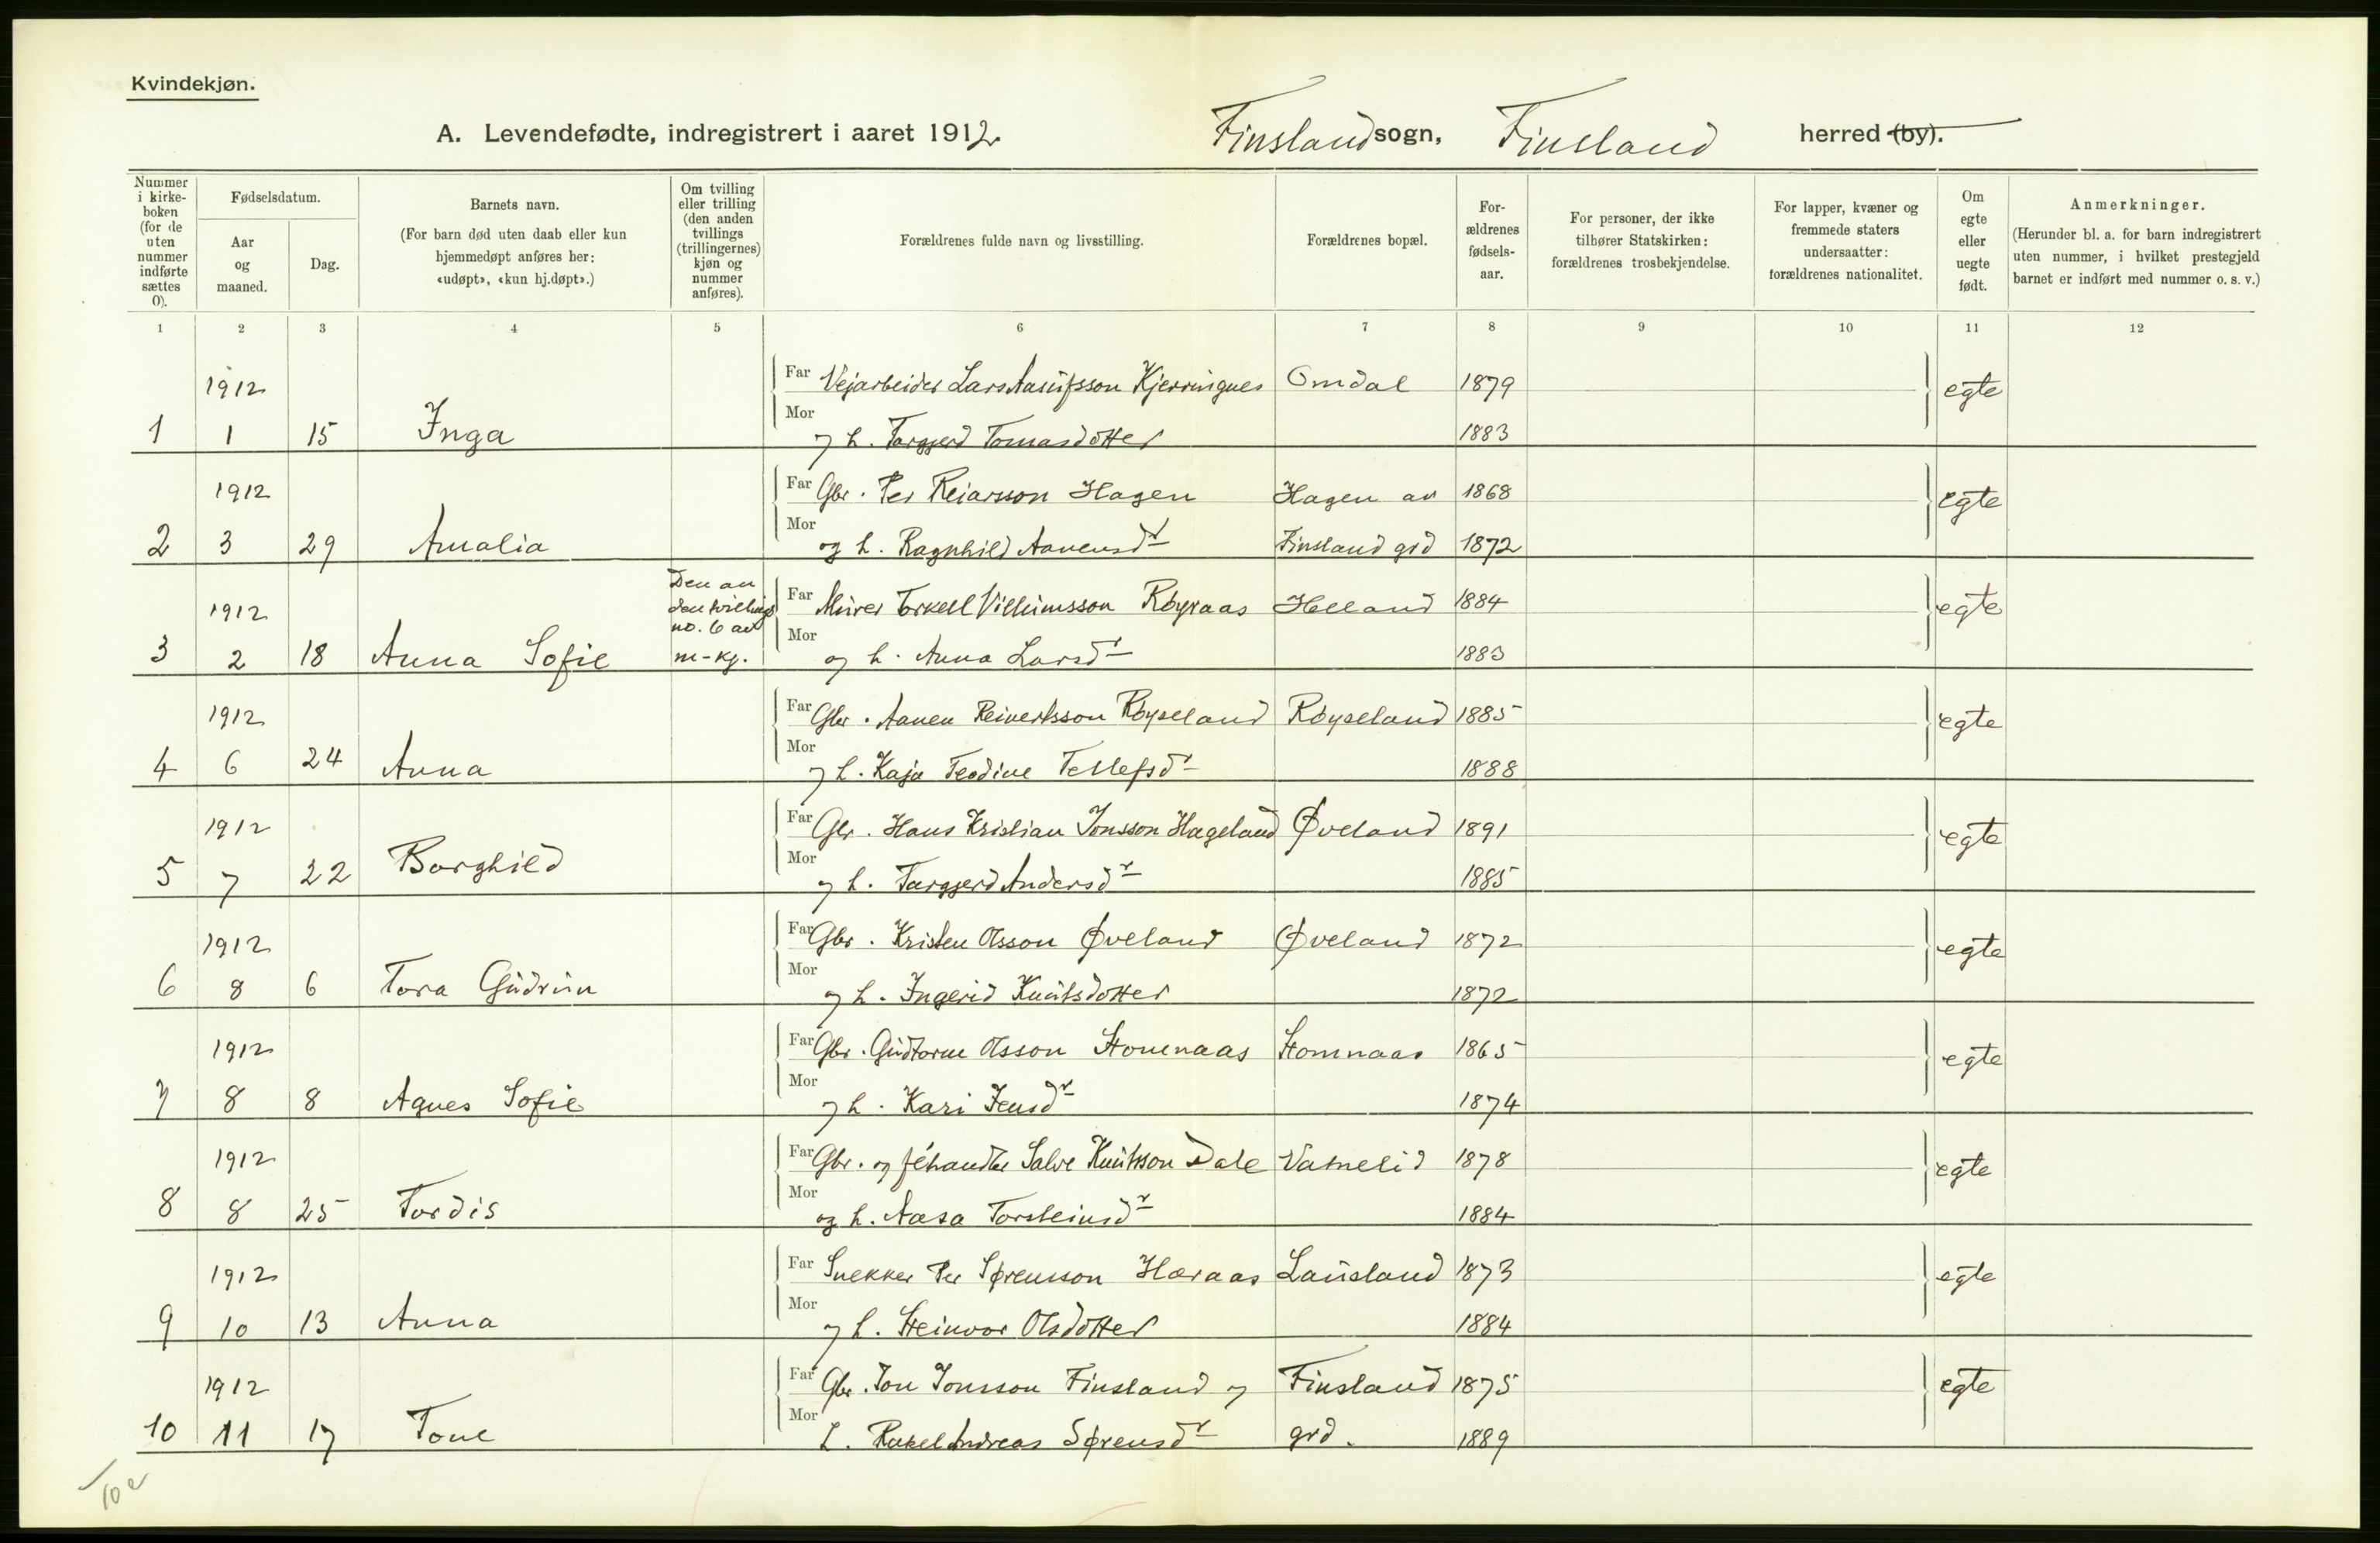 Kvindekjøn.
A. Levendefødte, indregistrert i aaret 1912 Finsland sogn, Finsland herred (by).
Nummer i kirke-boken (for de uten nummer indførte sættes 0).
Fødselsdatum.
Aar og maaned.
Dag.
Barnets navn.
(For barn død uten daab eller kun
hjemmedøpt anføres her:
«udøpt», «kun hj.døpt».)
Om tvilling
eller trilling
(den anden
tvillings
(trillingernes)
kjøn og
nummer
anføres).
Forældrenes fulde navn og livsstilling.
Forældrenes bopæl.
For-
ældrenes
fødsels-
aar.
For personer, der ikke
tilhører Statskirken:
forældrenes trosbekjendelse.
For lapper, kvæner og
fremmede staters
undersaatter:
forældrenes nationalitet.
Om
egte
eller
uegte
født.
Anmerkninger.
(Herunder bl. a. for barn indregistrert
uten nummer, i hvilket prestegjeld
barnet er indført med nummer o. s. v.)
1 2 3 4 5 6 7 8 9 10 11 12
1912 Far Vejarbeider Lars Kjerringnes Omdal 1879 egte
1 1 15 Inga Mor og h. Torgjerd Tomasdotter 1883
1912 Far Gbr. Per Reiarsson Hagen Hagen av 1868 egte
2 3 29 Amalia Mor og h. Ragnhild Aanensdr Finsland grd 1872
Den an
den tvilling
no. 6 av
m-kj.
1912 Far Murer Torkell Villumsson Røyraas Helland 1884 egte
3 2 18 Anna Sofie Mor og h. Anna Larsdr 1883
1912 Far Gbr. Aanen Reinertsson Røyseland Røyseland 1885 egte
4 6 24 Anna Mor og h. Kaja Teodine Tellefsdr 1888
1912 Far Gbr. Hans Kristian Jonsson Hageland Øveland 1891 egte
5 7 22 Borghild Mor og h. Torgjerd Andersdr 1885
1912 Far Gbr. Kristen Olsson Øveland Øveland 1872 egte
6 8 6 Tora Gudrun Mor og h. Ingerid Knutsdotter 1872
1912 Far Gbr. Gudtorm Olsson Stomnaas Stomnaas 1865 egte
7 8 8 Agnes Sofie Mor og h. Kari Jensdr 1874
1912 Far Gbr. og féhandler Salve Knutsson Dale Vatnelid 1878 egte
8 8 25 Tordis Mor og h. Aasa Torsteinsdr 1884
1912 Far Snekker Per Sørensson Haraas Lausland 1873 egte
9 10 13 Anna Mor og h. Steinvor Olsdotter 1884
1912 Far Gbr. Jon Jonsson Finsland og Finsland 1875 egte
10 11 17 Tone Mor h. Rakel Andreas Sørensdr grd. 1889